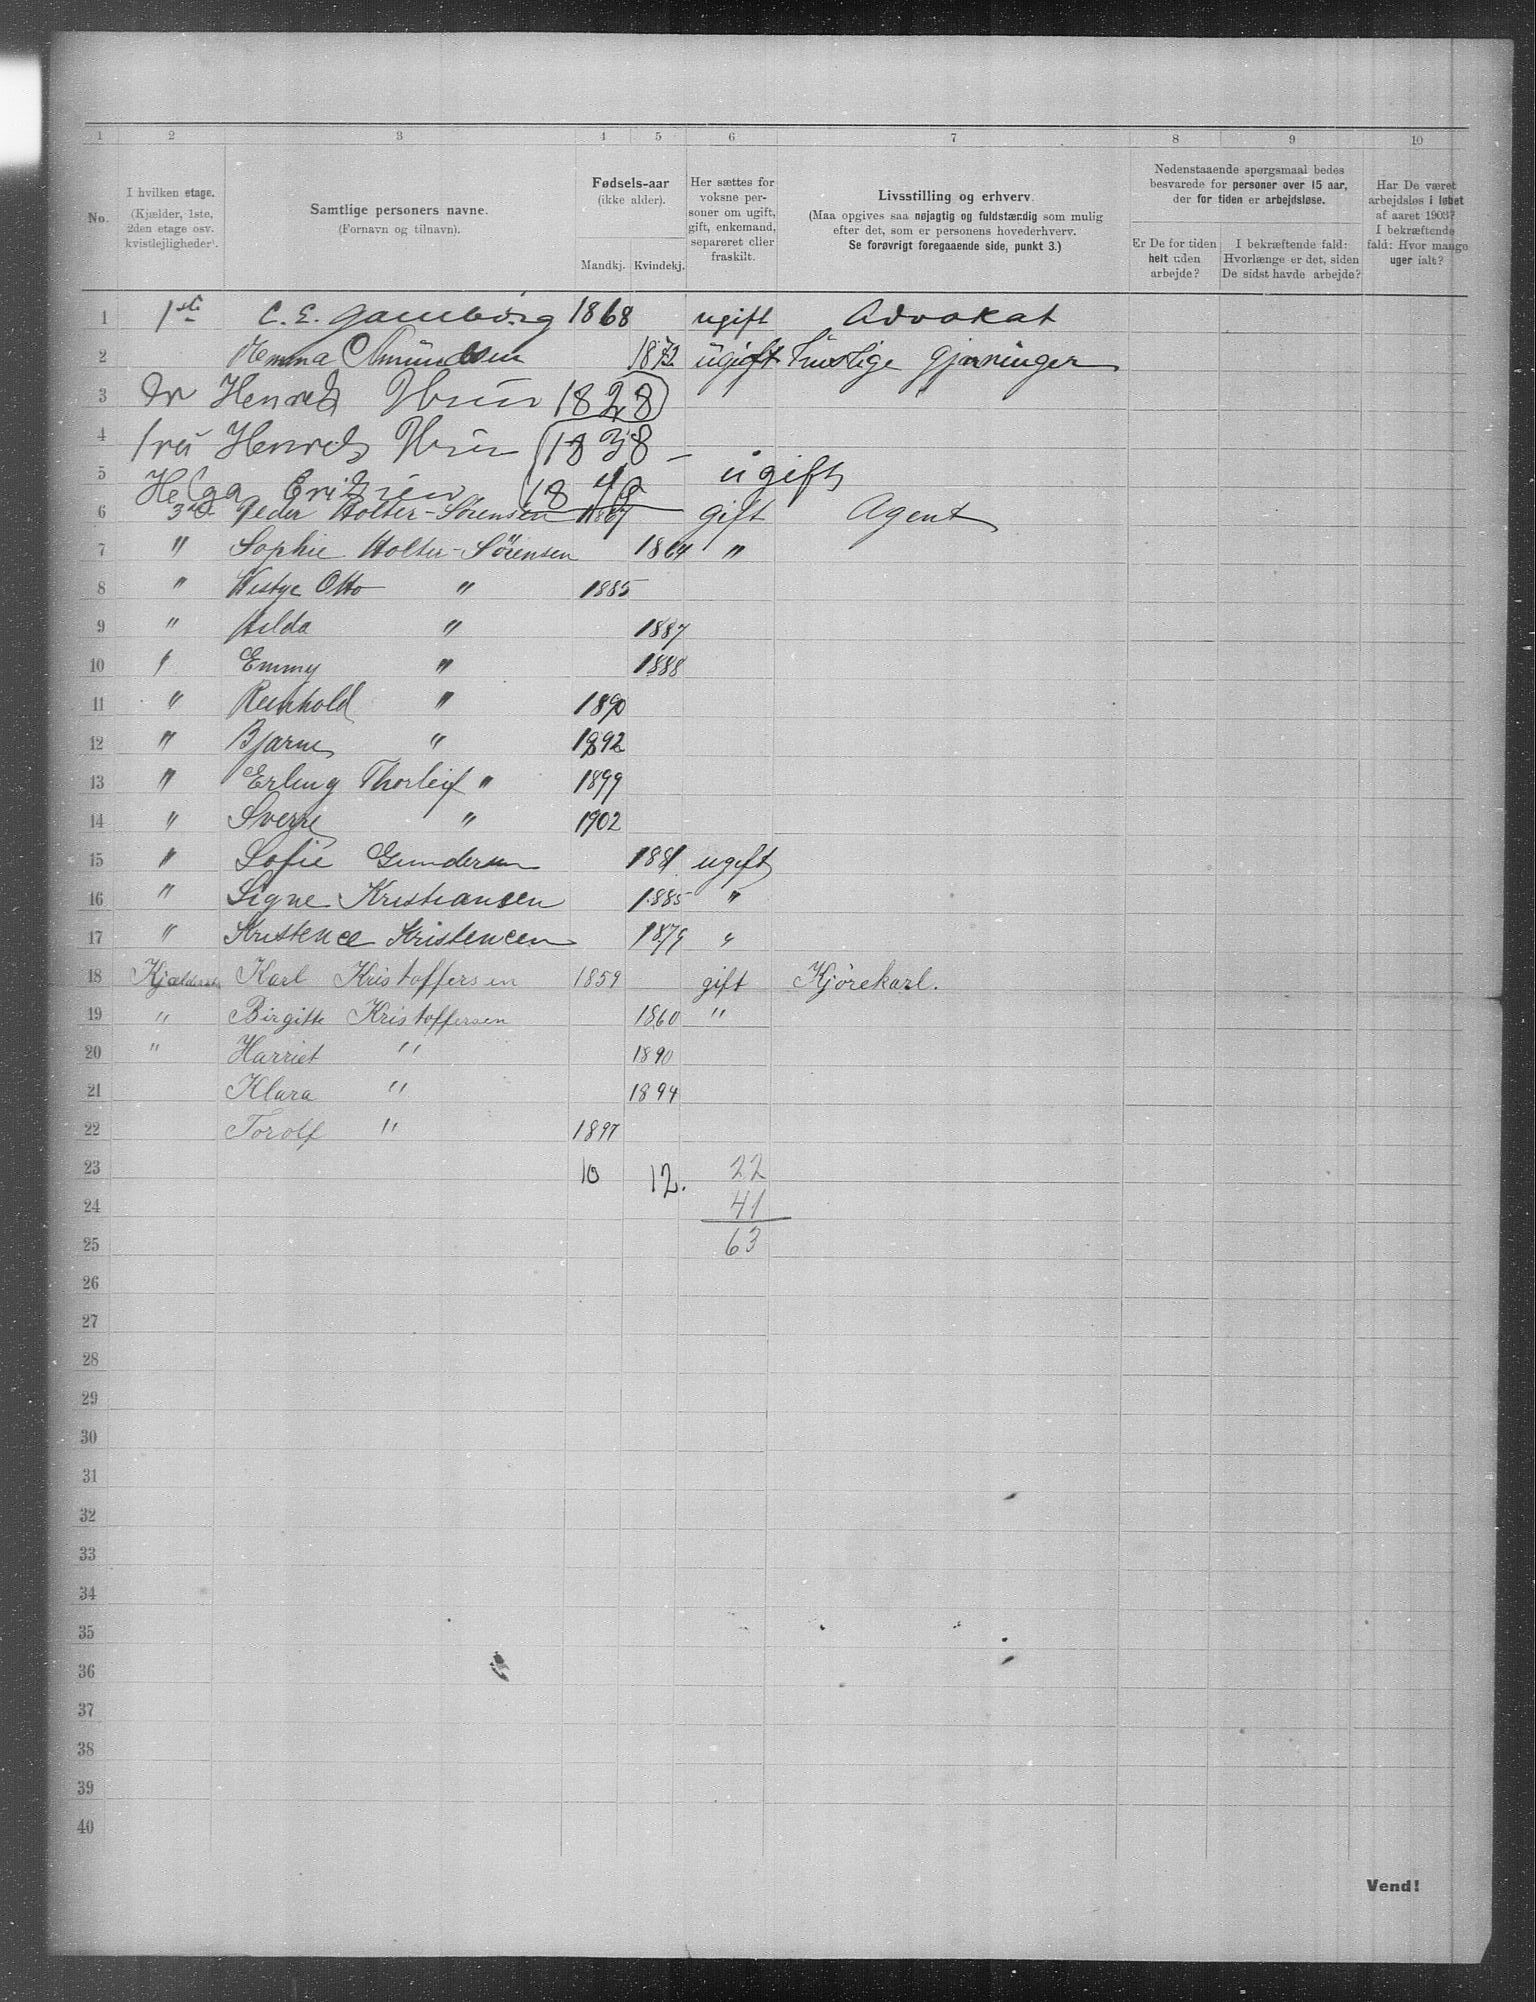 1 2 3 4 5 6 7 8 9 10
No.
I hvilken etage.
(Kjælder, 1ste,
2den etage osv.
kvistlejligheder).
Samtlige personers navne.
(Fornavn og tilnavn).
Fødsels-aar
(ikke alder).
Mandkj. Kvindekj.
Her sættes for
voksne per-
soner om ugift,
gift, enkemand,
separeret eller
fraskilt.
Livsstilling og erhverv.
(Maa opgives saa nøjagtig og fuldstændig som mulig
efter det, som er personens hovederhverv.
Se forøvrigt foregaaende side, punkt 3.)
Nedenstaaende spørgsmaal bedes
besvarede for personer over 15 aar,
der for tiden er arbejdsløse.
Er De for tiden
helt uden
arbejde?
I bekræftende fald:
Hvorlænge er det, siden
De sidst havde arbejde?
Har De været
arbejdsløs i løbet
af aaret 1903?
I bekræftende
fald: Hvor mange
uger ialt?
1 1ste C. E. Gamborg 1868 ugift Advokat
2 Hemma Amundsen 1872 ugift huslige gjerninger
3 Hr Henrik 1828
4 fru Henrik 1838
5 Helga Eriksen 18 ugift
6 3die Peder Holter-Sørensen 1867 gift Agent
7 " Sophie Holter-Sørensen 1864 "
8 " Westye Otto " 1885
9 " Hilda " 1887
10 " Emmy " 1888
11 " Reinhold " 1890
12 " Bjarne " 1892
13 " Erling Thorleif " 1899
14 " Sverre " 1902
15 " Sofie Gundersen 1881 ugift
16 " Signe Kristiansen 1885 "
17 " Kristence Kristencen 1879 "
18 Karl Kristoffersen 1859 gift Kjörekarl.
19 " Birgitte Kristoffersen 1860 "
20 " Harriet " 1890
21 Klara " 1894
22 Torolf " 1897
23 10 12. 22
24 41
25 63
26
27
28
29
30
31
32
33
34
35
36
37
38
39
40
Vend!